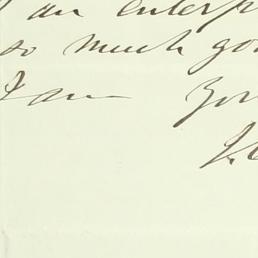 an enterp
so much goo
I am You